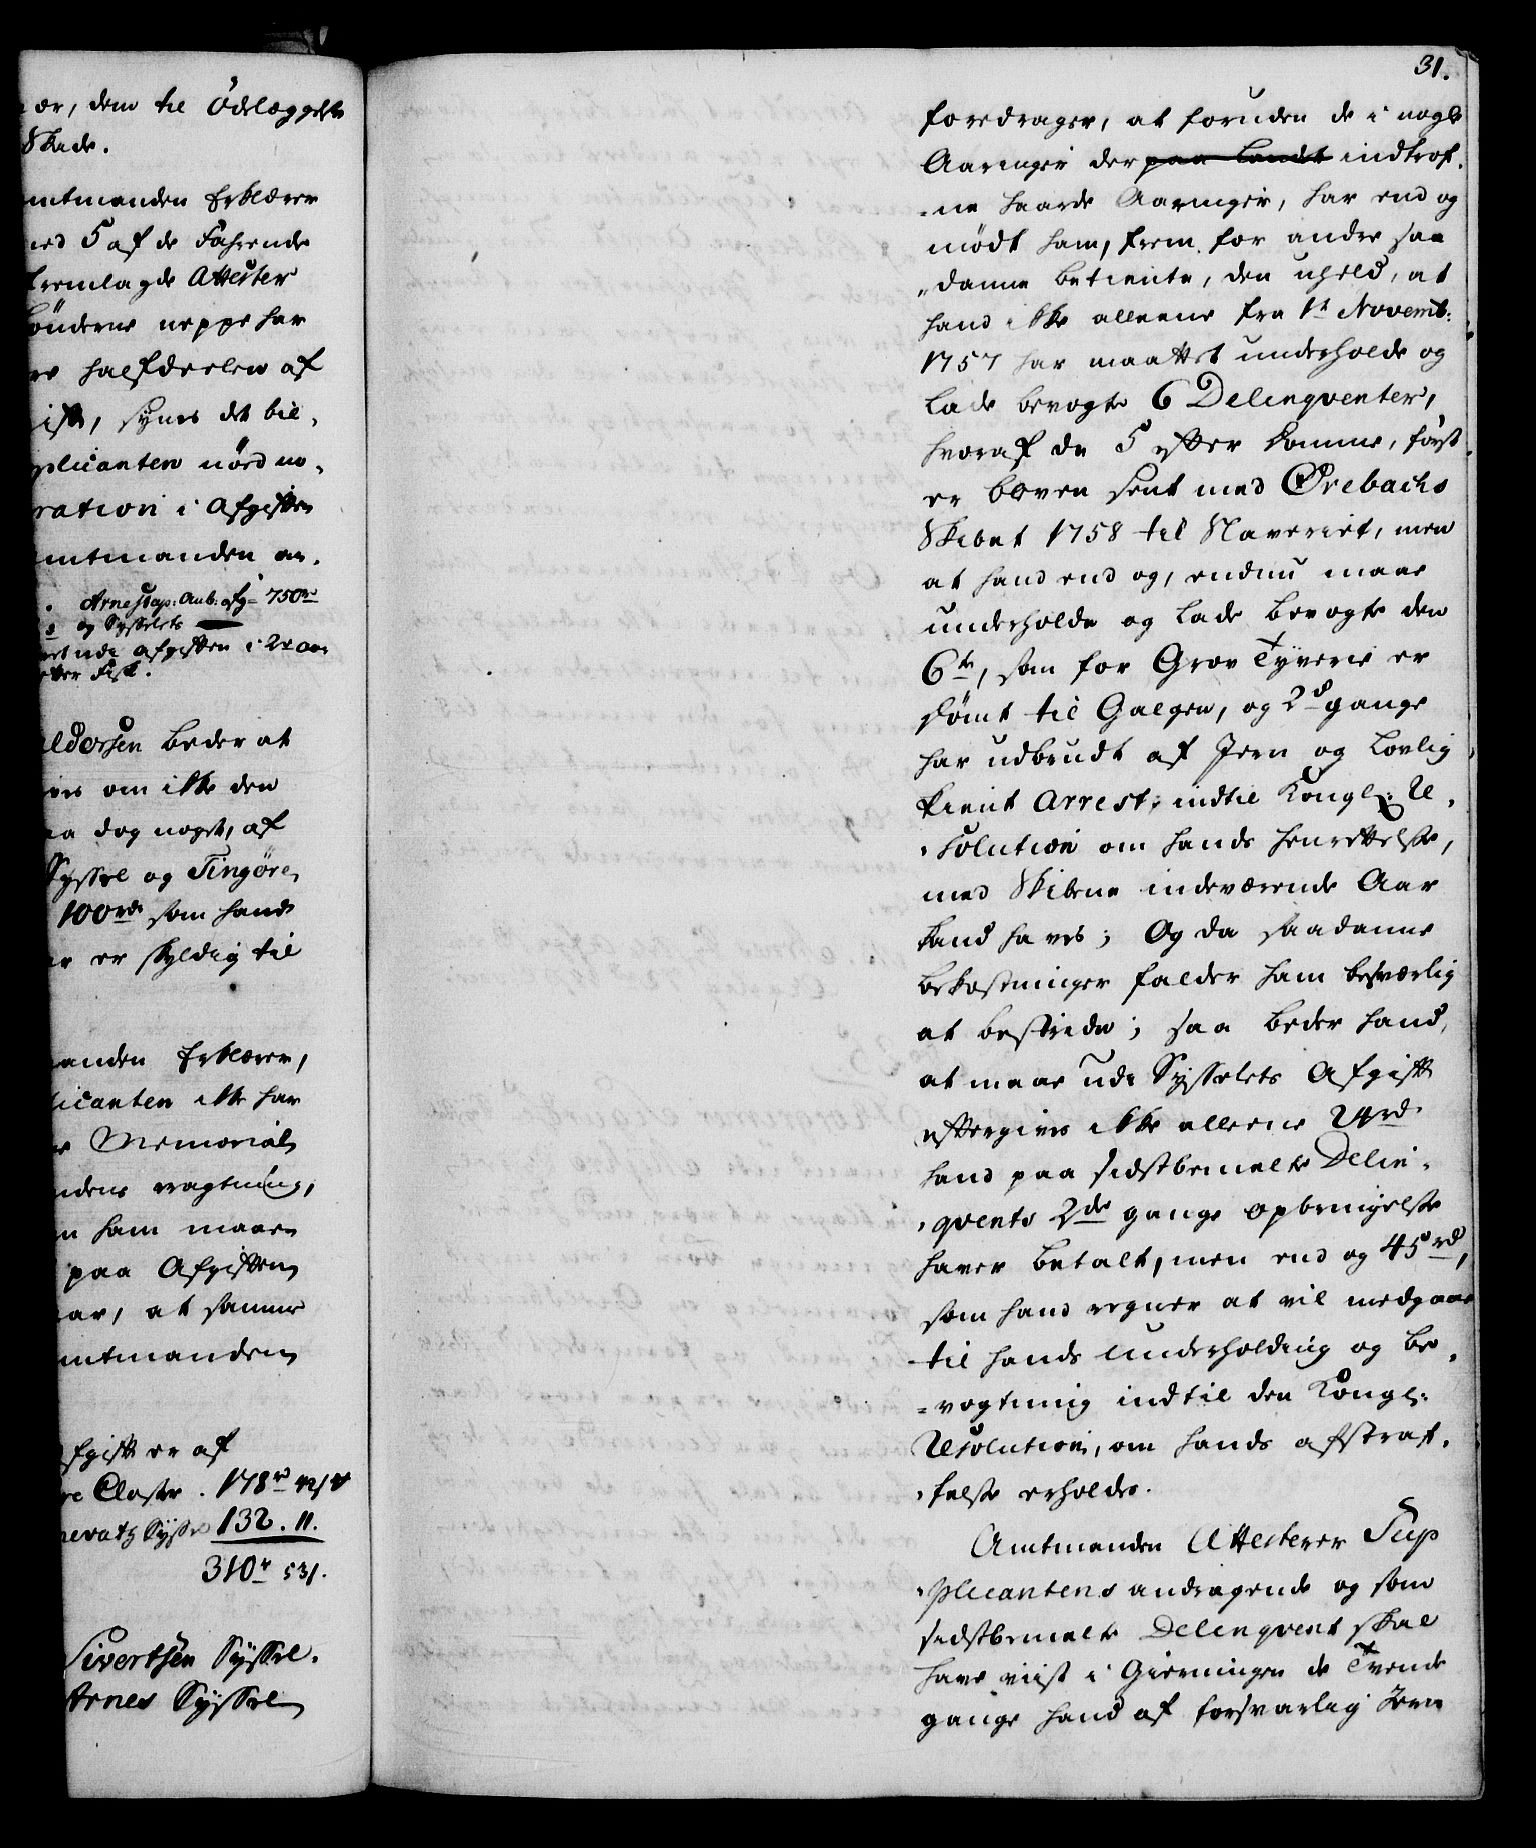 ær, dem til Ödelæggelse
Skade.
mtmanden Erklærer
med 5 af de Fahrende
fremlagde Attester
bönderne neppe har
halfdeelen af
synes det bil„
plicanten nörd mo„
ration i Afgiften
Amtmanden an„
Arnestap: Omb: afg = 750
og Sysselets
afgiften i 2
Fisk.
aldorsen beder at
om ikke den
dog noget, af
Syssel og Tingöre
100 rd som hand
er skyldig til
manden Erklærer,
plicanten ikke har
Memorial
ndens vagtning,
ham maae
paa Afgiften
aar, at samme
Amtmanden
Afgift er af
Closter . 178
Syssel 132 . 11.
310 r 531.
Sivertsen Syssel„
Arnes Syssel
31.
foredrager, at foruden de i nogle
Aaringer der paa Landet indtrof„
„ne haarde Aaringer, har end og
mödt ham, frem for andre saa
„danne betiente, den uheld, at
hand ikke alleene fra 1t Novemb:
1757 har maattet underholde og
lade bevogte 6 Delinqventer,
hvoraf de 5 efter Domme, först
er bleven sent med Örebachs
Skibet 1758 til Slaveriet, men
at hand end og, endnu maae
underholde og lade bevogte den
6te, som for Grov Tyverie er
dömt til Galgen, og 2de gange
har udbrudt af Jern og lovlig
kient Arrest; indtil Kongl: Re„
„solution om hands henrettelse,
med Skibene indeværende Aar
kand haves; Og da saadanne
bekostninger falder ham besværlig
at bestride; saa beder hand,
at maae udi Sysselets Afgift
eftergives ikke alleene 24 rd
hand paa sidstbemelte Delin„
„qvents 2de gange opbringelse
haver betalt, men end og 45 rd,
som hand regner at vil medgaae
til hands Underholding og be„
„vogtning indtil den Kongl:
Resolution, om hands afstraf„
„felse erholdes.
Amtmanden Attesterer Sup
„plicantens andragende og som
sidstbemelte Delinqvent skal
have viist i Gierningen de Tvende
gange hand af forsvarlig Jern